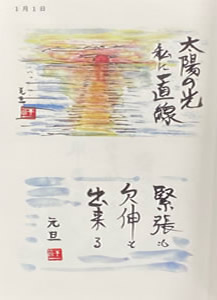 1月1日
太陽の光
私に一直線
緊張も
欠伸も
出来る
元旦